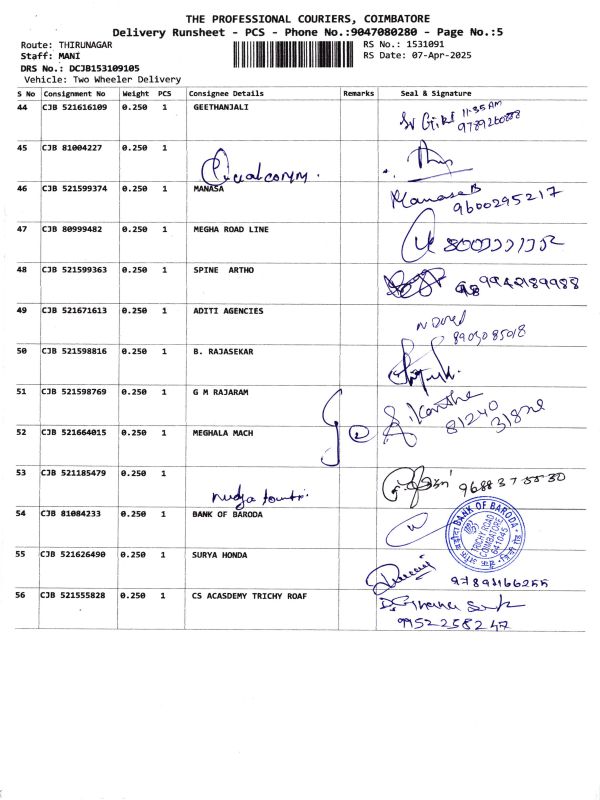 THE PROFESSIONAL COURIERS, COIMBATORE
Delivery Runsheet - PCS - Phone No.:9047080280 - Page No.:5
Route: THIRUNAGAR RS No.: 1531091
Staff: MANI RS Date: 07-Apr-2025
DRS No.: DCJB153109105
Vehicle: Two Wheeler Delivery
S No Consignment No Weight PCS Consignee Details Remarks Seal & Signature
44 CJB 521616109 0.250 1 GEETHANJALI
11:35 AM
45 CJB 81004227 0.250 1
Qualcomm.
46 CJB 521599374 0.250 1 MANASA Manasa B
9600295217
47 CJB 80999482 0.250 1 MEGHA ROAD LINE
48 CJB 521599363 0.250 1 SPINE ARTHO 9942189988
49 CJB 521671613 0.250 1 ADITI AGENCIES
8903085018
50 CJB 521598816 0.250 1 B. RAJASEKAR
51 CJB 521598769 0.250 1 G M RAJARAM
81240
52 CJB 521664015 0.250 1 MEGHALA MACH
53 CJB 521185479 0.250 1
54 CJB 81084233 0.250 1 BANK OF BARODA
BANK OF BARODA
TRICHY ROAD
COIMBATORE
641045
55 CJB 521626490 0.250 1 SURYA HONDA
56 CJB 521555828 0.250 1 CS ACASDEMY TRICHY ROAF
9952258247